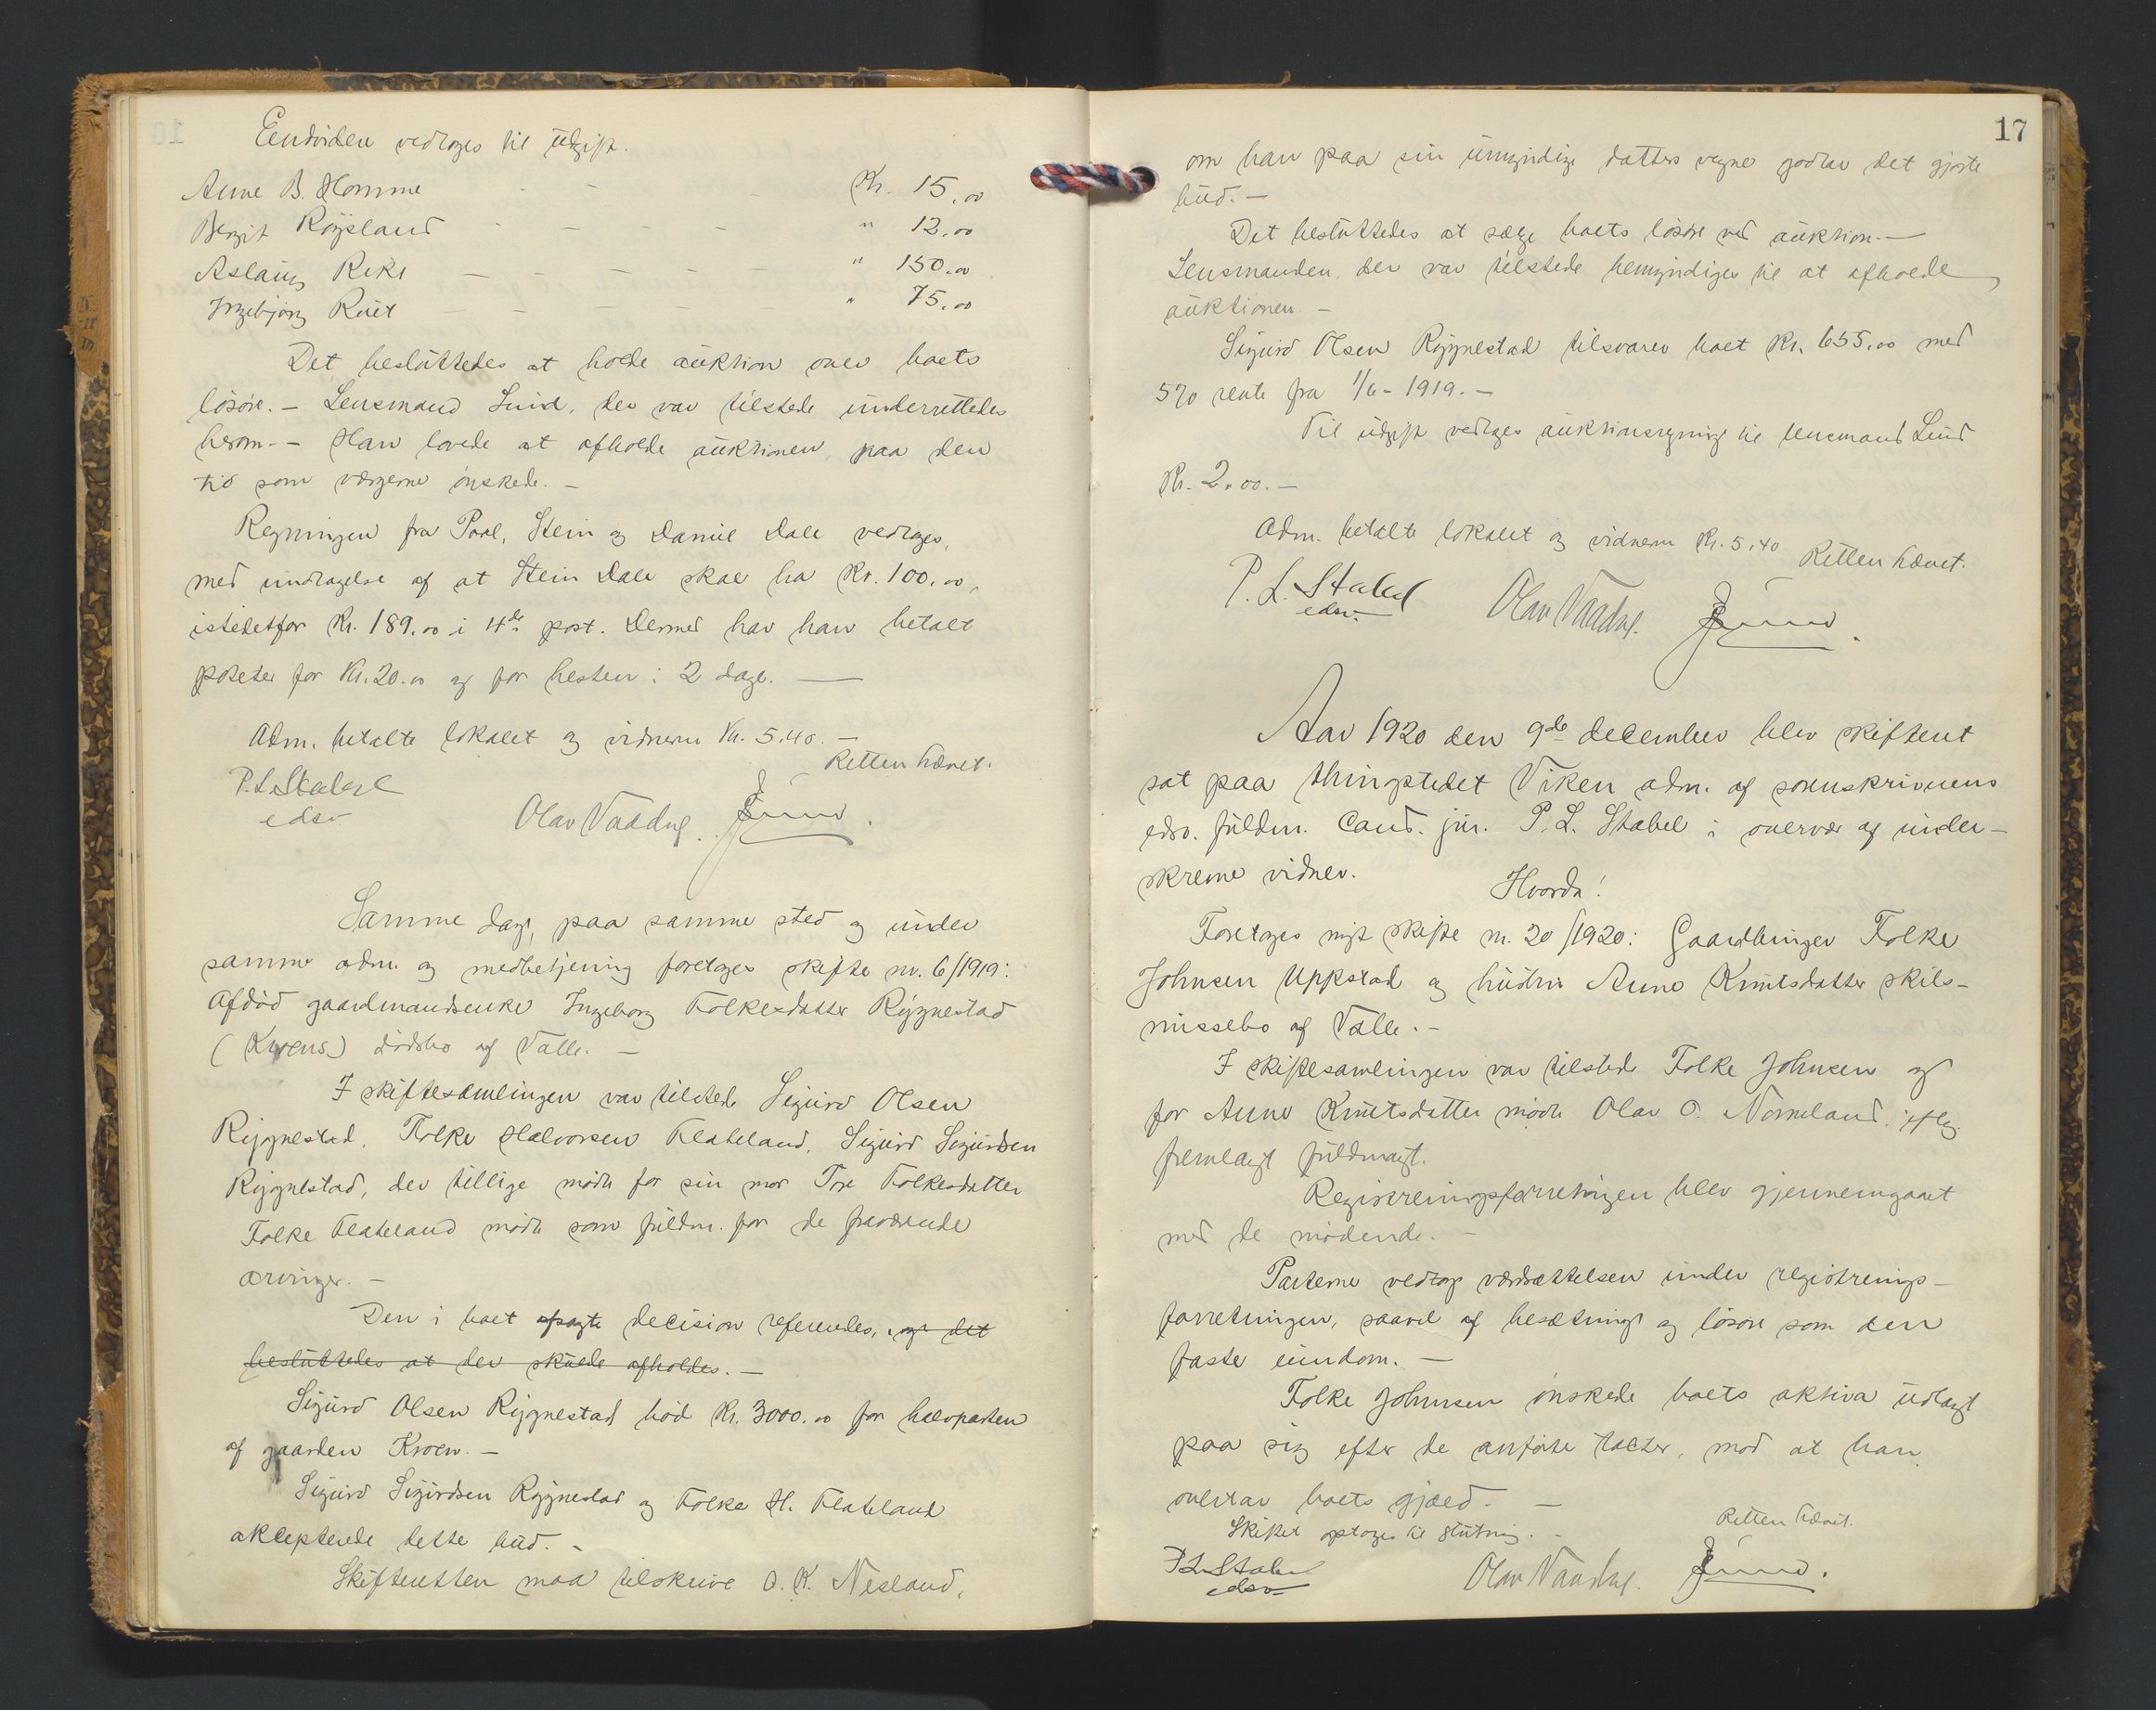 Endvidere vedtoges til utgift.
Anne B. Homme - - Kr. 15.00
Bergit Røysland - - - - " 12.00
Aslaug Rike - - - - - " 150.00
Ingebjørg Ruet - - - - " 75.00
Det besluttedes at holde auktion over boets
løsøre. - Lensmand Lund, der var tilstede underrettedes
herom. - Han lovede at afholde auktionen paa den
tid som værgerne ønskede. -
Regningen fra Paal, Stein og Daniel Dale vedtoges,
med undtagelse af at Stein Dale skal ha Kr. 100.00,
istedetfor Kr. 189.00 i 4de post. Dermed har han betalt
poteter for Kr. 20.00 og for hesten i 2 dage. —
Adm. betalte lokalet og vidnerne Kr. 5.40. -
Retten hævet.
P. L. Stabel
edsv.
Olav Vaadug. Lund.
Samme dag, paa samme sted og under
samme adm. og medbetjening foretoges skifte nr. 6/1919:
Afdød gaardmandsenke Ingeborg Folkesdatter Rygnestad
(Kroens) dødsbo af Valle. -
I skiftesamlingen var tilstede Sigurd Olsen
Rygnestad, Folke Halvorsen Flateland, Sigurd Sigurdsen
Rygnestad, der tillige mødte for sin mor Tore Folkesdatter
Folke Flateland mødte som fuldm. for de fraværende
arvinger. -
Den i boet afsagte decision refereredes, og det
besluttedes at der skulde afholdes. -
Sigurd Olsen Rygnestad bød Kr. 3000.00 for halvparten
af gaarden Kroen. -
Sigurd Sigurdsen Rygnestad og Folke H. Flateland
akcepterede dette bud. -
Skifteretten maa tilskrive O. K. Nesland,
17
om han paa sin umyndige datters vegne godtar det gjorte
bud. -
Det besluttedes at sælge boets løsøre ved auktion. -
Lensmanden, der var tilstede bemyndiges til at afholde
auktionen. -
Sigurd Olsen Rygnestad tilsvarer boet Kr. 655.00 med
5% rente fra 1/6 - 1919. -
Til udgift vedtoges auktionsregning til lensmand Lund
Kr. 2.00. -
Adm. betalte lokalet og vidnerne Kr. 5.40
Retten hævet.
P. L. Stabel
edsv.
Olav Vaadug. Lund.
Aar 1920 den 9de december blev skifteret
sat paa thingstedet Viken adm. af sorenskriverens
edsv. fuldm. Cand. jur. P. L. Stabel i overvær af under-
skrevne vidner.
Hvorda!
Foretoges nyt skifte nr. 20/1920: Gaardbruger Folke
Johnsen Uppstad og hustru Anne Knutsdatter skils-
missebo af Valle. -
I skiftesamlingen var tilstede Folke Johnsen og
for Anne Knutsdatter mødte Olav O. Nomeland, iflg.
fremlagt fuldmagt.
Registreringsforretningen blev gjennemgaaet
med de mødende. -
Parterne vedtog værdsættelsen under registrerings-
forretningen, saavel af besætning og løsøre som den
faste eiendom. -
Folke Johnsen ønskede boets aktiva udlagt
paa sig efter de anførte takster, mod at han
overtar boets gjæld. -
Skiftet optoges til slutning. -
Retten hævet.
P. L. Stabel
edsv.
Olav Vaadug. Lund.